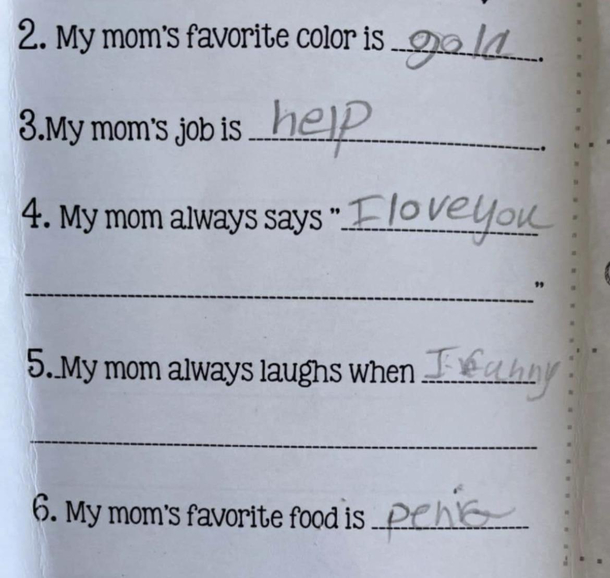 2. My mom's favorite color is gold.
3.My mom's job is help.
4. My mom always says "I love you
"
5. My mom always laughs when I funny
6. My mom's favorite food is